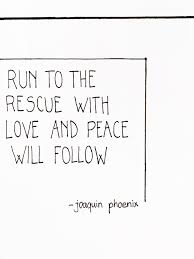 RUN TO THE
RESCUE WITH
LOVE AND PEACE
WILL FOLLOW
-joaquin phoenix